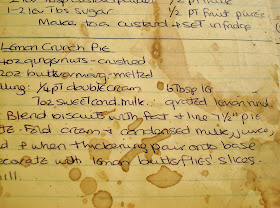 1-2 level tbs sugar ½ pt fruit purée
Make to a custard + set in fridge
Lemon Crunch Pie
4oz gingernuts - crushed
2oz butter/marg - melted
lling: ¼pt double cream 6 Tbsp lem
7oz sweet cond. milk. grated lemon rind
Blend biscuits with fat & line 7½" pie
te. Fold cream & condensed milk, juice
nd & when thickening pair onto base
ecorate with lemon butterflies slices.
ill.